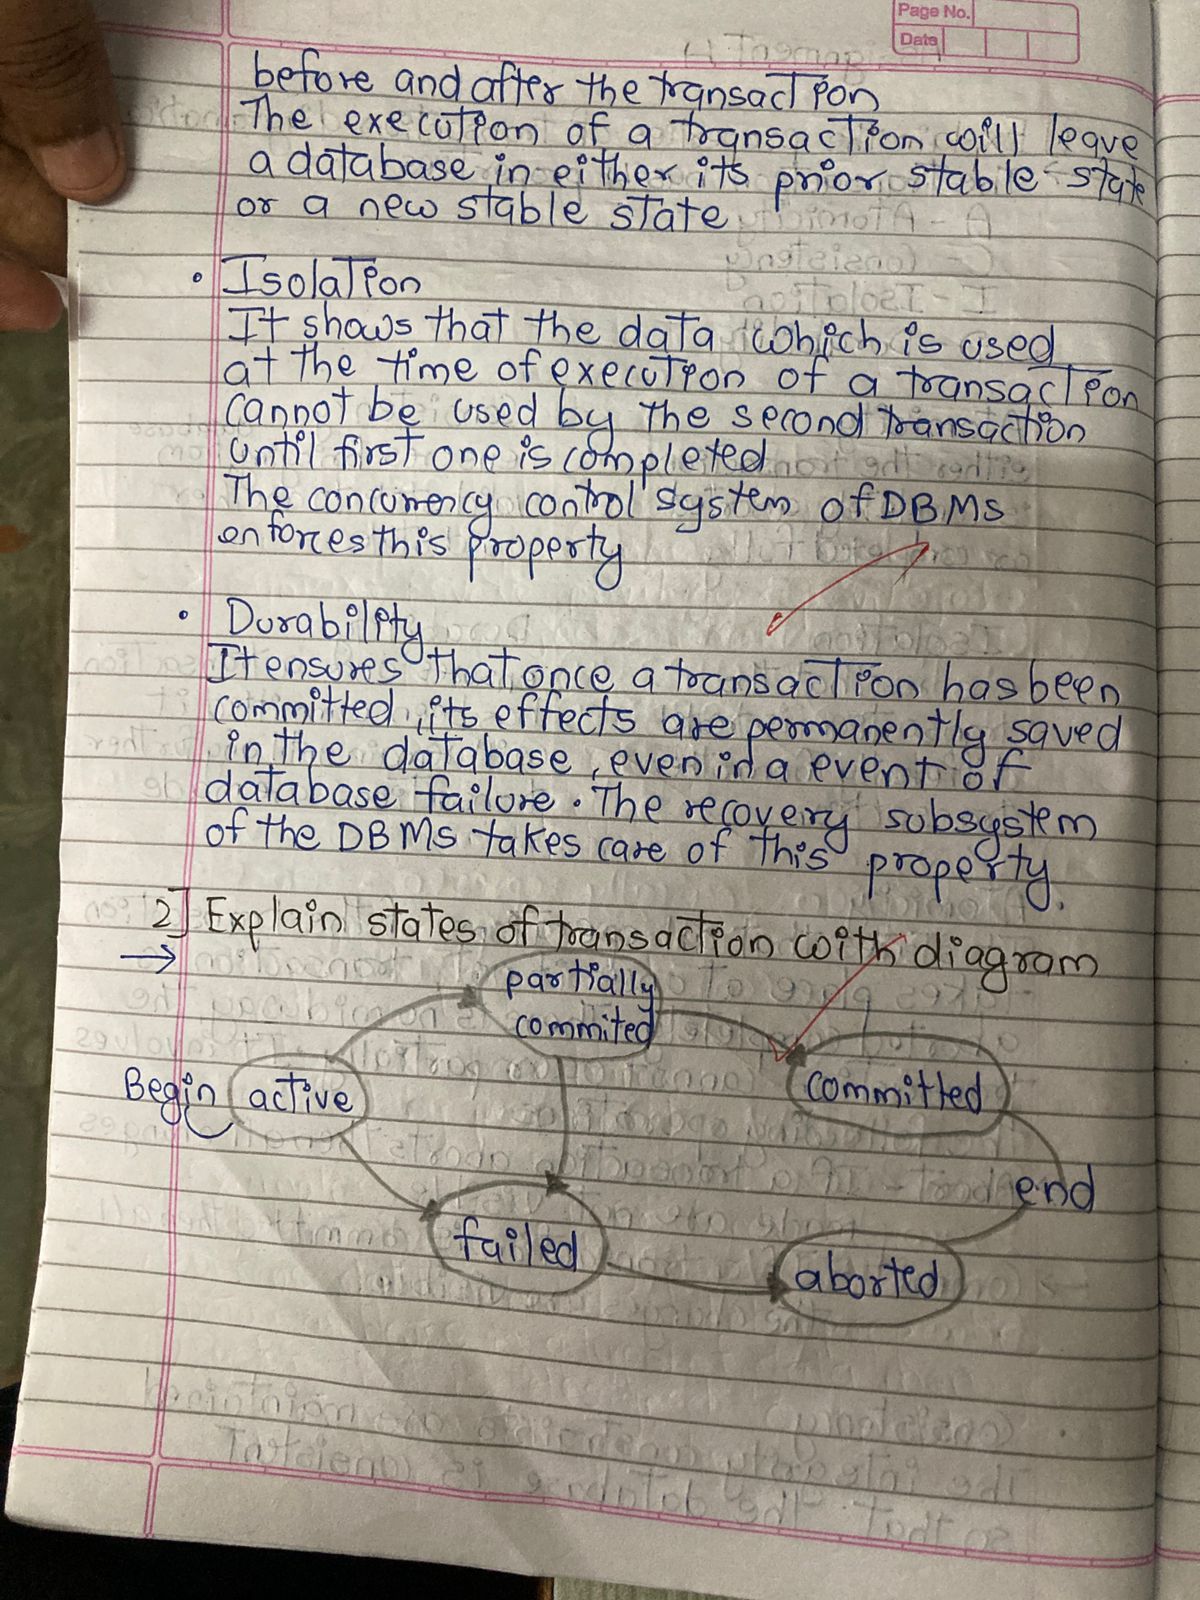 Page No.
Date
before and after the transaction
The execution of a transaction will leave
a database in either its prior stable state
or a new stable state
• Isolation
It shows that the data which is used
at the time of execution of a transaction
cannot be used by the second transaction
until first one is completed
The concurrency control system of DBMS
enforces this property
• Durability
It ensures that once a transaction has been
committed, its effects are permanently saved
in the database, even in a event of
database failure. The recovery subsystem
of the DBMS takes care of this property.
2] Explain states of transaction with diagram
→
partially
commited
Begin active
committed
end
failed
aborted